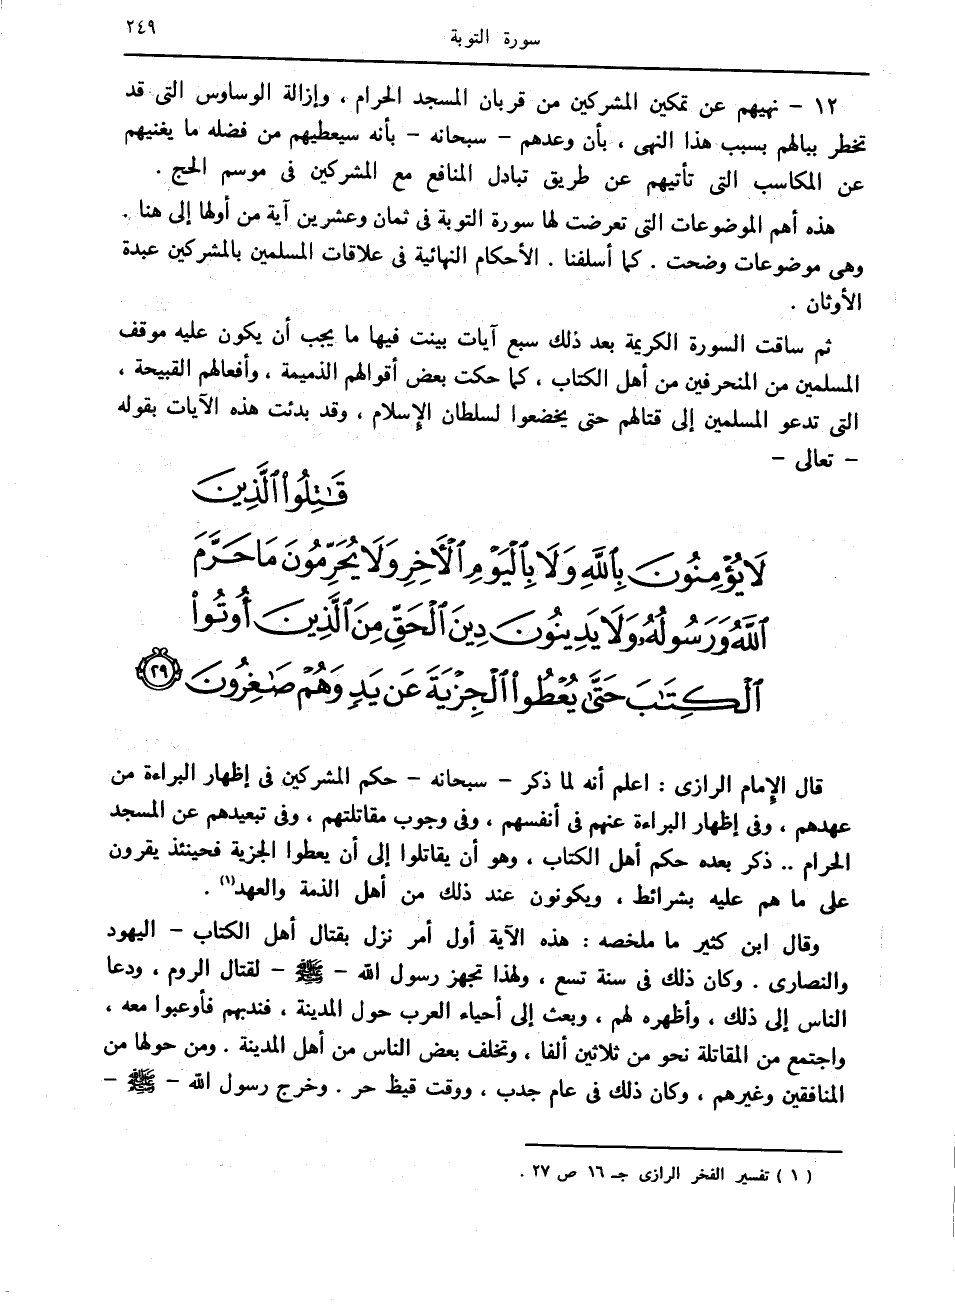 ٢٤٩
سورة التوبة
١٢ - نهيهم عن تمكين المشركين من قربان المسجد الحرام ، وإزالة الوساوس التى قد
تخطر ببالهم بسبب هذا النهى ، بأن وعدهم - سبحانه - بأنه سيعطيهم من فضله ما يغنيهم
عن المكاسب التى تأتيهم عن طريق تبادل المنافع مع المشركين فى موسم الحج .
هذه أهم الموضوعات التى تعرضت لها سورة التوبة فى ثمان وعشرين آية من أولها إلى هنا .
وهى موضوعات وضحت . كما أسلفنا . الأحكام النهائية فى علاقات المسلمين بالمشركين عبدة
الأوثان .
ثم ساقت السورة الكريمة بعد ذلك سبع آيات بينت فيها ما يجب أن يكون عليه موقف
المسلمين من المنحرفين من أهل الكتاب ، كما حكت بعض أقوالهم الذميمة ، وأفعالهم القبيحة ،
التى تدعو المسلمين إلى قتالهم حتى يخضعوا لسلطان الإسلام ، وقد بدئت هذه الآيات بقوله
- تعالى -
قَٰتِلُوا۟ ٱلَّذِينَ
لَا يُؤْمِنُونَ بِٱللَّهِ وَلَا بِٱلْيَوْمِ ٱلْأَخِرِ وَلَا يُحَرِّمُونَ مَا حَرَّمَ
ٱللَّهُ وَرَسُولُهُۥ وَلَا يَدِينُونَ دِينَ ٱلْحَقِّ مِنَ ٱلَّذِينَ أُوتُوا۟
ٱلْكِتَٰبَ حَتَّىٰ يُعْطُوا۟ ٱلْجِزْيَةَ عَن يَدٍ وَهُمْ صَٰغِرُونَ ٢٩
قال الإمام الرازى : اعلم أنه لما ذكر - سبحانه - حكم المشركين فى إظهار البراءة من
عهدهم ، وفى إظهار البراءة عنهم فى أنفسهم ، وفى وجوب مقاتلتهم ، وفى تبعيدهم عن المسجد
الحرام .. ذكر بعده حكم أهل الكتاب ، وهو أن يقاتلوا إلى أن يعطوا الجزية فحينئذ يقرون
على ما هم عليه بشرائط ، ويكونون عند ذلك من أهل الذمة والعهد(١) .
وقال ابن كثير ما ملخصه : هذه الآية أول أمر نزل بقتال أهل الكتاب - اليهود
والنصارى . وكان ذلك فى سنة تسع ، ولهذا تجهز رسول الله - ﷺ - لقتال الروم ، ودعا
الناس إلى ذلك ، وأظهره لهم ، وبعث إلى أحياء العرب حول المدينة ، فندبهم فأوعبوا معه ،
واجتمع من المقاتلة نحو من ثلاثين ألفا ، وتخلف بعض الناس من أهل المدينة . ومن حولها من
المنافقين وغيرهم ، وكان ذلك فى عام جدب ، ووقت قيظ حر . وخرج رسول الله - ﷺ -
( ١ ) تفسير الفخر الرازى جـ ١٦ ص ٢٧ .